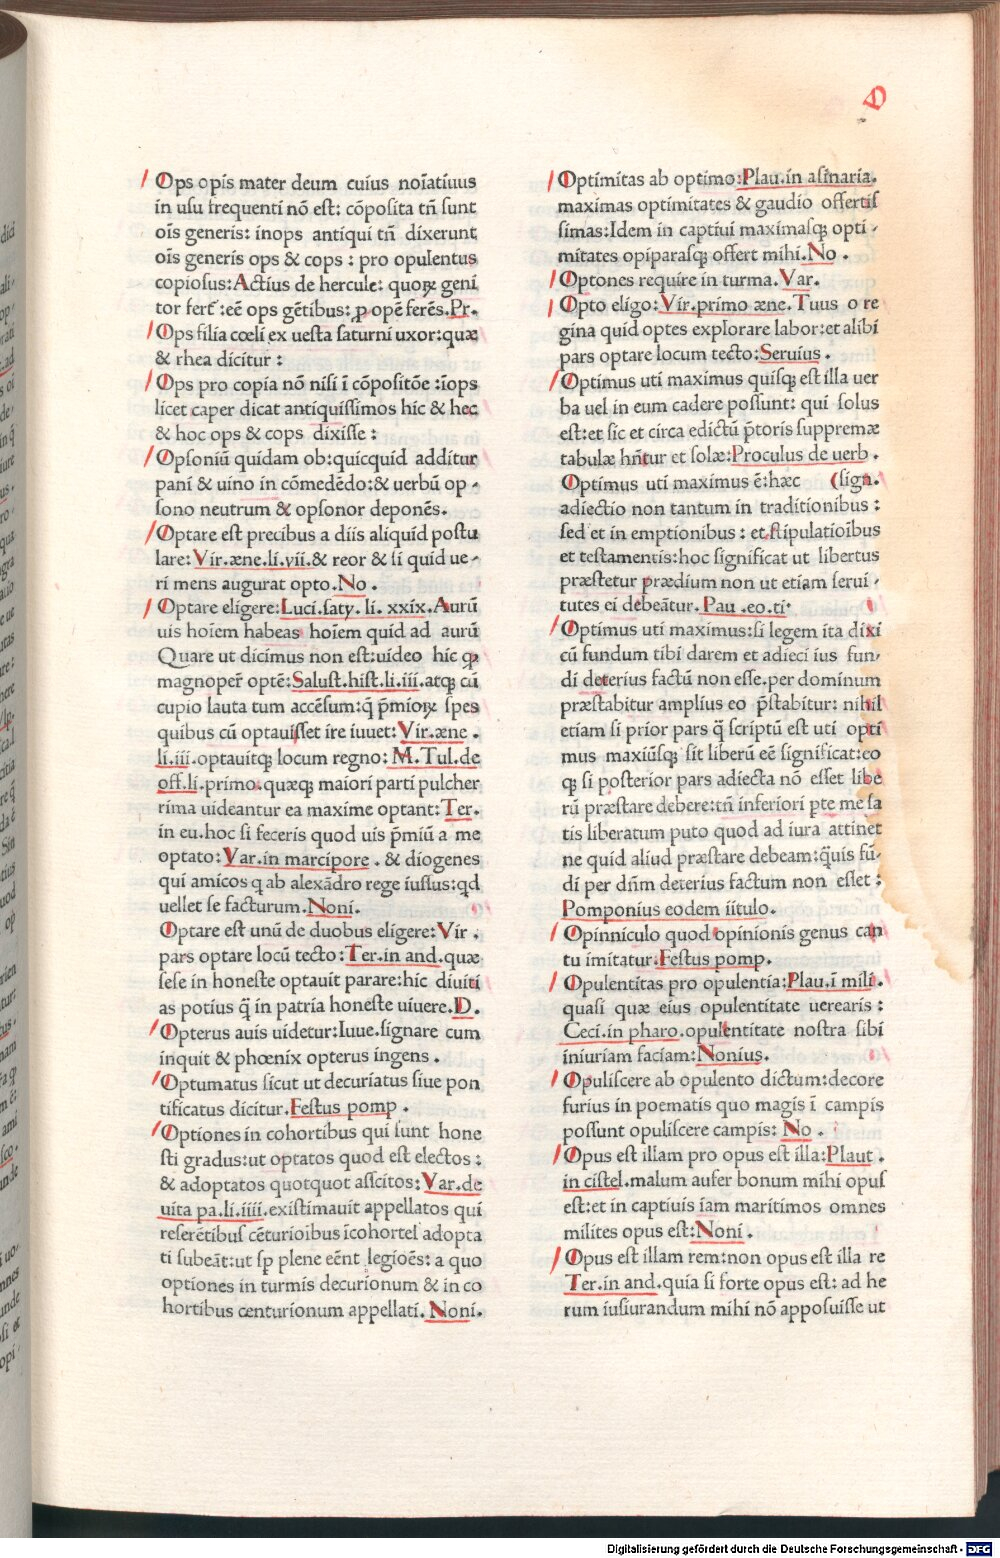 Ops opis mater deum cuius noīatiuus
in usu frequenti nō est: cōposita tñ sunt
oīs generis: inops antiqui tñ dixerunt
oīs generis ops & cops : pro opulentus
copiosus: Actius de hercule: quoꝝ geni
tor fert̄ :eē ops gētibus: ꝑ opē ferēs. Pr.
Ops filia cœli ex uesta saturni uxor: quæ
& rhea dicitur :
Ops pro copia nō nisi ī cōpositōe :iops
licet caper dicat antiquissimos hic & hec
& hoc ops & cops dixisse :
Opsoniū quidam ob: quicquid additur
pani & uino in cōmedēdo: & uerbū op-
sono neutrum & opsonor deponēs.
Optare est precibus a diis aliquid postu
lare: Vir.æne.li.vii.& reor & si quid ue-
ri mens augurat opto. No .
Optare eligere: Luci.saty. li. xxix. Aurū
uis hoīem habeas hoīem quid ad aurū
Quare ut dicimus non est: uideo hic ꝙ
magnoper̄ optē: Salust.hist.li.iii.atqȝ cū
cupio lauta tum accēsum: q̄ p̄mioꝝ spes
quibus cū optauisset ire iuuet: Vir.æne .
li.iii.optauitqȝ locum regno: M.Tul.de
off.li.primo.quæqȝ maiori parti pulcher
rima uideantur ea maxime optant: Ter.
in eu.hoc si feceris quod uis p̄miū a me
optato: Var.in marcipore . & diogenes
qui amicos q ab alexādro rege iussus: qd
uellet se facturum. Noni.
Optare est unū de duobus eligere: Vir .
pars optare locū tecto: Ter.in and.quæ
sese in honeste optauit parare: hic diuiti
as potius q̄ in patria honeste uiuere. D.
Opterus auis uidetur: Iuue.signare cum
inquit & phœnix opterus ingens .
Optumatus sicut ut decuriatus siue pon
tificatus dicitur. Festus pomp .
Optiones in cohortibus qui sunt hone
sti gradus: ut optatos quod est electos :
& adoptatos quotquot asscitos: Var.de
uita pa.li.iiii.existimauit appellatos qui
referētibus cēturioibus īcohortes adopta
ti subeāt: ut sp plene eēnt legioēs: a quo
optiones in turmis decurionum & in co
hortibus centurionum appellati. Noni.
Optimitas ab optimo: Plau.in asinaria.
maximas optimitates & gaudio offertis
simas: Idem in captiui maximasqȝ opti -
mitates opiparasqȝ offert mihi. No .
Optones require in turma. Var.
Opto eligo: Vir.primo æne. Tuus o re
gina quid optes explorare labor: et alibi
pars optare locum tecto: Seruius .
Optimus uti maximus quisqȝ est illa uer
ba uel in eum cadere possunt: qui solus
est: et sic et circa edictū p̄toris supremæ
tabulæ hñtur et solæ: Proculus de uerb .
Optimus uti maximus ē: hæc (sign.
adiectio non tantum in traditionibus :
sed et in emptionibus : et stipulatioībus
et testamentis: hoc significat ut libertus
præstetur prædium non ut etiam serui -
tutes ei debeātur. Pau .eo.ti.
Optimus uti maximus: si legem ita dixi
cū fundum tibi darem et adieci ius fun-
di deterius factū non esse.per dominum
præstabitur amplius eo p̄stabitur: nihil
etiam si prior pars q̄ scriptū est uti opti
mus maxiūsqȝ sit liberū eē significat: eo
qȝ si posterior pars adiecta nō esset libe
rū præstare debere: tñ inferiori pte me sa
tis liberatum puto quod ad iura attinet
ne quid aliud præstare debeam: q̄uis fū-
di per dñm deterius factum non esset :
Pomponius eodem iitulo.
Opinniculo quod opinionis genus cap
tu imitatur. Festus pomp.
Opulentitas pro opulentia: Plau.ī mili.
quasi quæ eius opulentitate uerearis :
Ceci.in pharo.opulentitate nostra sibi
iniuriam faciam: Nonius.
Opuliscere ab opulento dictum: decore
furius in poematis quo magis ī campis
possunt opuliscere campis: No .
Opus est illam pro opus est illa: Plaut .
in cistel.malum aufer bonum mihi opus
est: et in captiuis iam maritimos omnes
milites opus est: Noni .
Opus est illam rem: non opus est illa re
Ter.in and.quia si forte opus est: ad he
rum iusiurandum mihi nō apposuisse ut
Digitalisierung gefördert durch die Deutsche Forschungsgemeinschaft - DFG